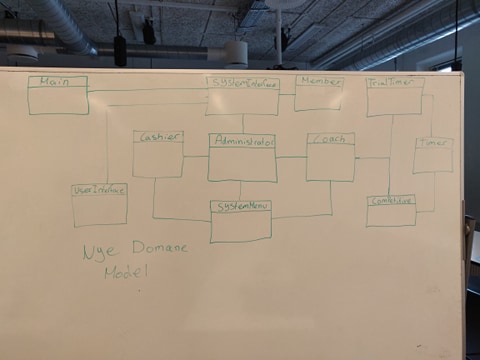 Main
SystemInterface
Member
TrialTimer
Cashier
Administrator
Coach
Timer
UserInterface
SystemMenu
Competitive
Nye Domane
Model